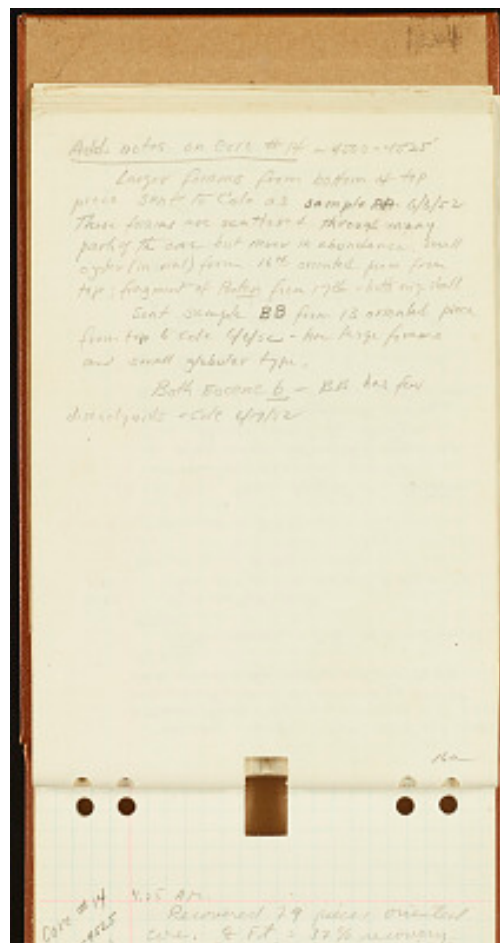 Adds notes on Core #14 - 4500-4525'
Larger forams from bottom of top
piece sent to Cole as sample 6/3/52
These forams are scattered through many
parts of the core but never in abundance. small
oyster (in vial) from 16th oriented piece from
top; fragment of Pecten from 17th - both
Sent sample BB from 13 oriented piece
from top to Cole - has large forams
and small globular type.
Both Eocene b - BB has few
discocyclinids - Cole
16a
Core #14
4525
4:25 AM
Recovered 29 pieces oriented
core. 37% recovery